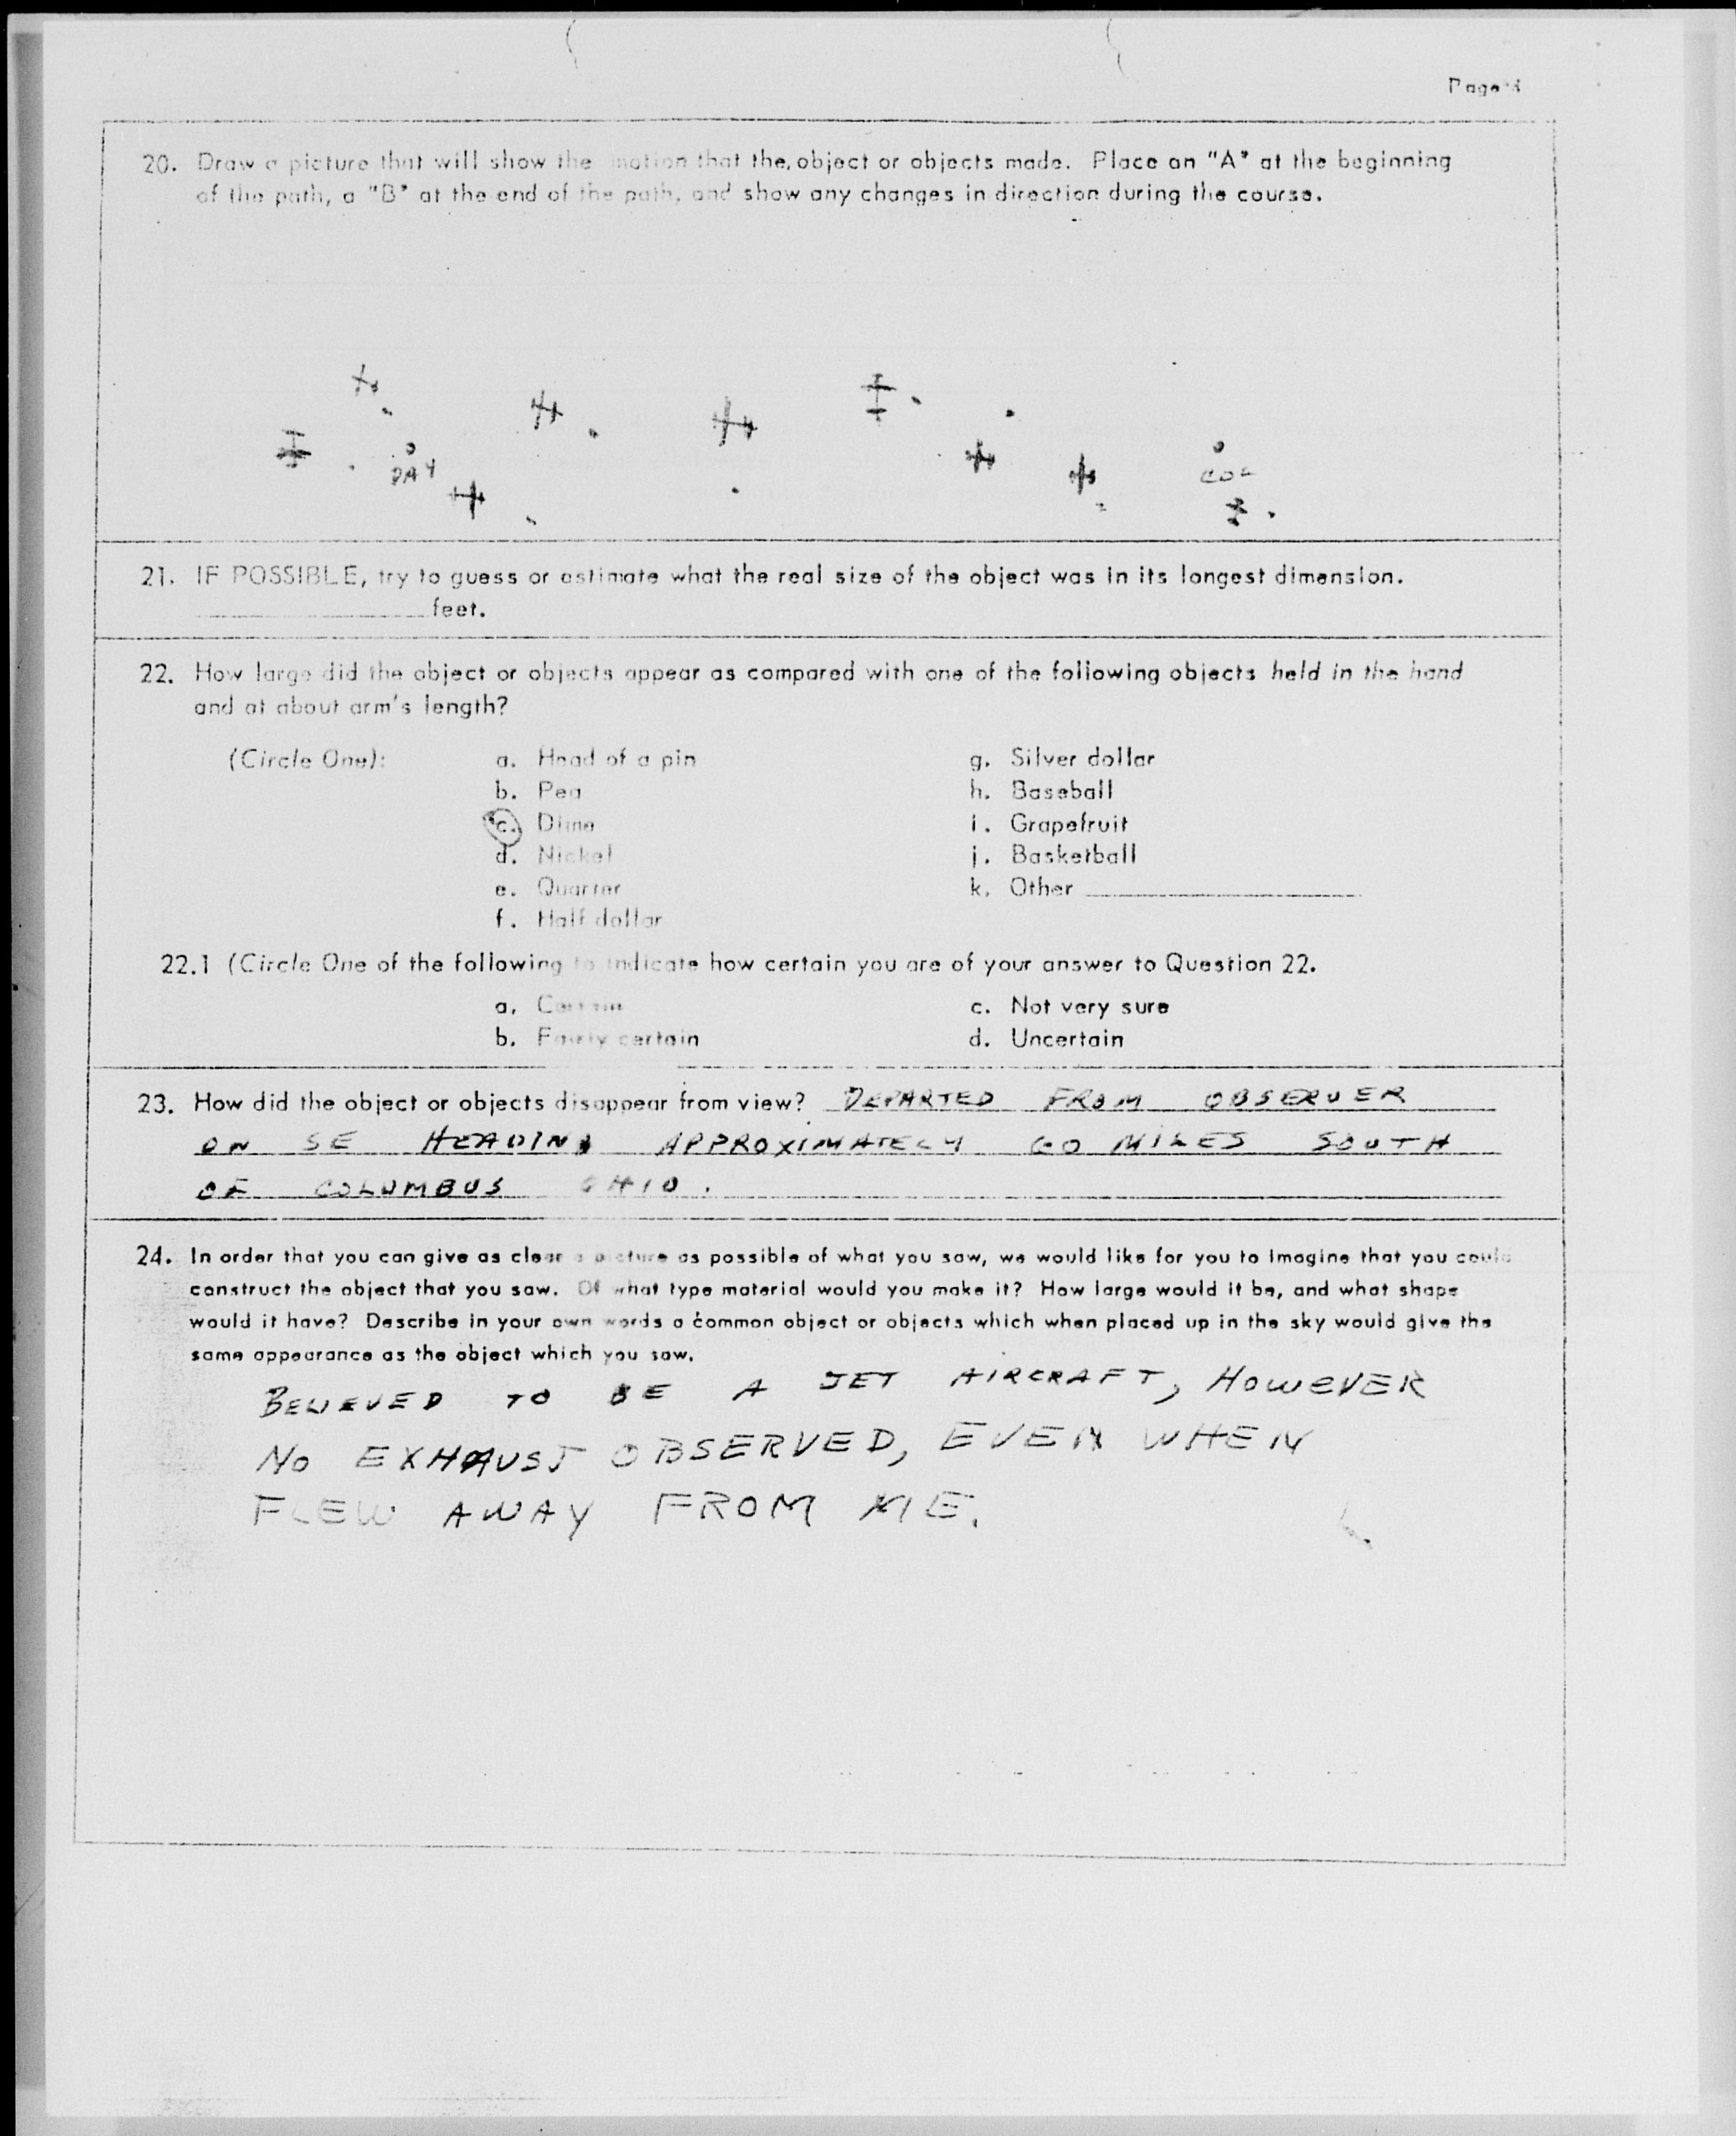 20. Draw a picture that will show the motion that the object or objects made. Place an "A" at the beginning
of the path, a "B" at the end of the path, and show any changes in direction during the course.
DAY
COL
21. IF POSSIBLE, try to guess or estimate what the real size of the object was in its longest dimension.
feet.
22. How large did the object or objects appear as compared with one of the following objects held in the hand
and at about arm's length?
(Circle One): a. Head of a pin g. Silver dollar
b. Pea h. Baseball
c. Dime i. Grapefruit
d. Nickel j. Basketball
e. Quarter k. Other
f. Half dollar
22.1 (Circle One of the following to indicate how certain you are of your answer to Question 22.
a. Certain c. Not very sure
b. Fairly certain d. Uncertain
23. How did the object or objects disappear from view? DEPARTED FROM OBSERVER
ON SE HEADING APPROXIMATELY MILES SOUTH
OF COLUMBUS OHIO.
24. In order that you can give as clear a picture as possible of what you saw, we would like for you to imagine that you could
construct the object that you saw. Of what type material would you make it? How large would it be, and what shape
would it have? Describe in your own words a common object or objects which when placed up in the sky would give the
same appearance as the object which you saw.
BELIEVED TO BE A JET AIRCRAFT, HOWEVER
NO EXHAUST OBSERVED, EVEN WHEN
FLEW AWAY FROM ME.